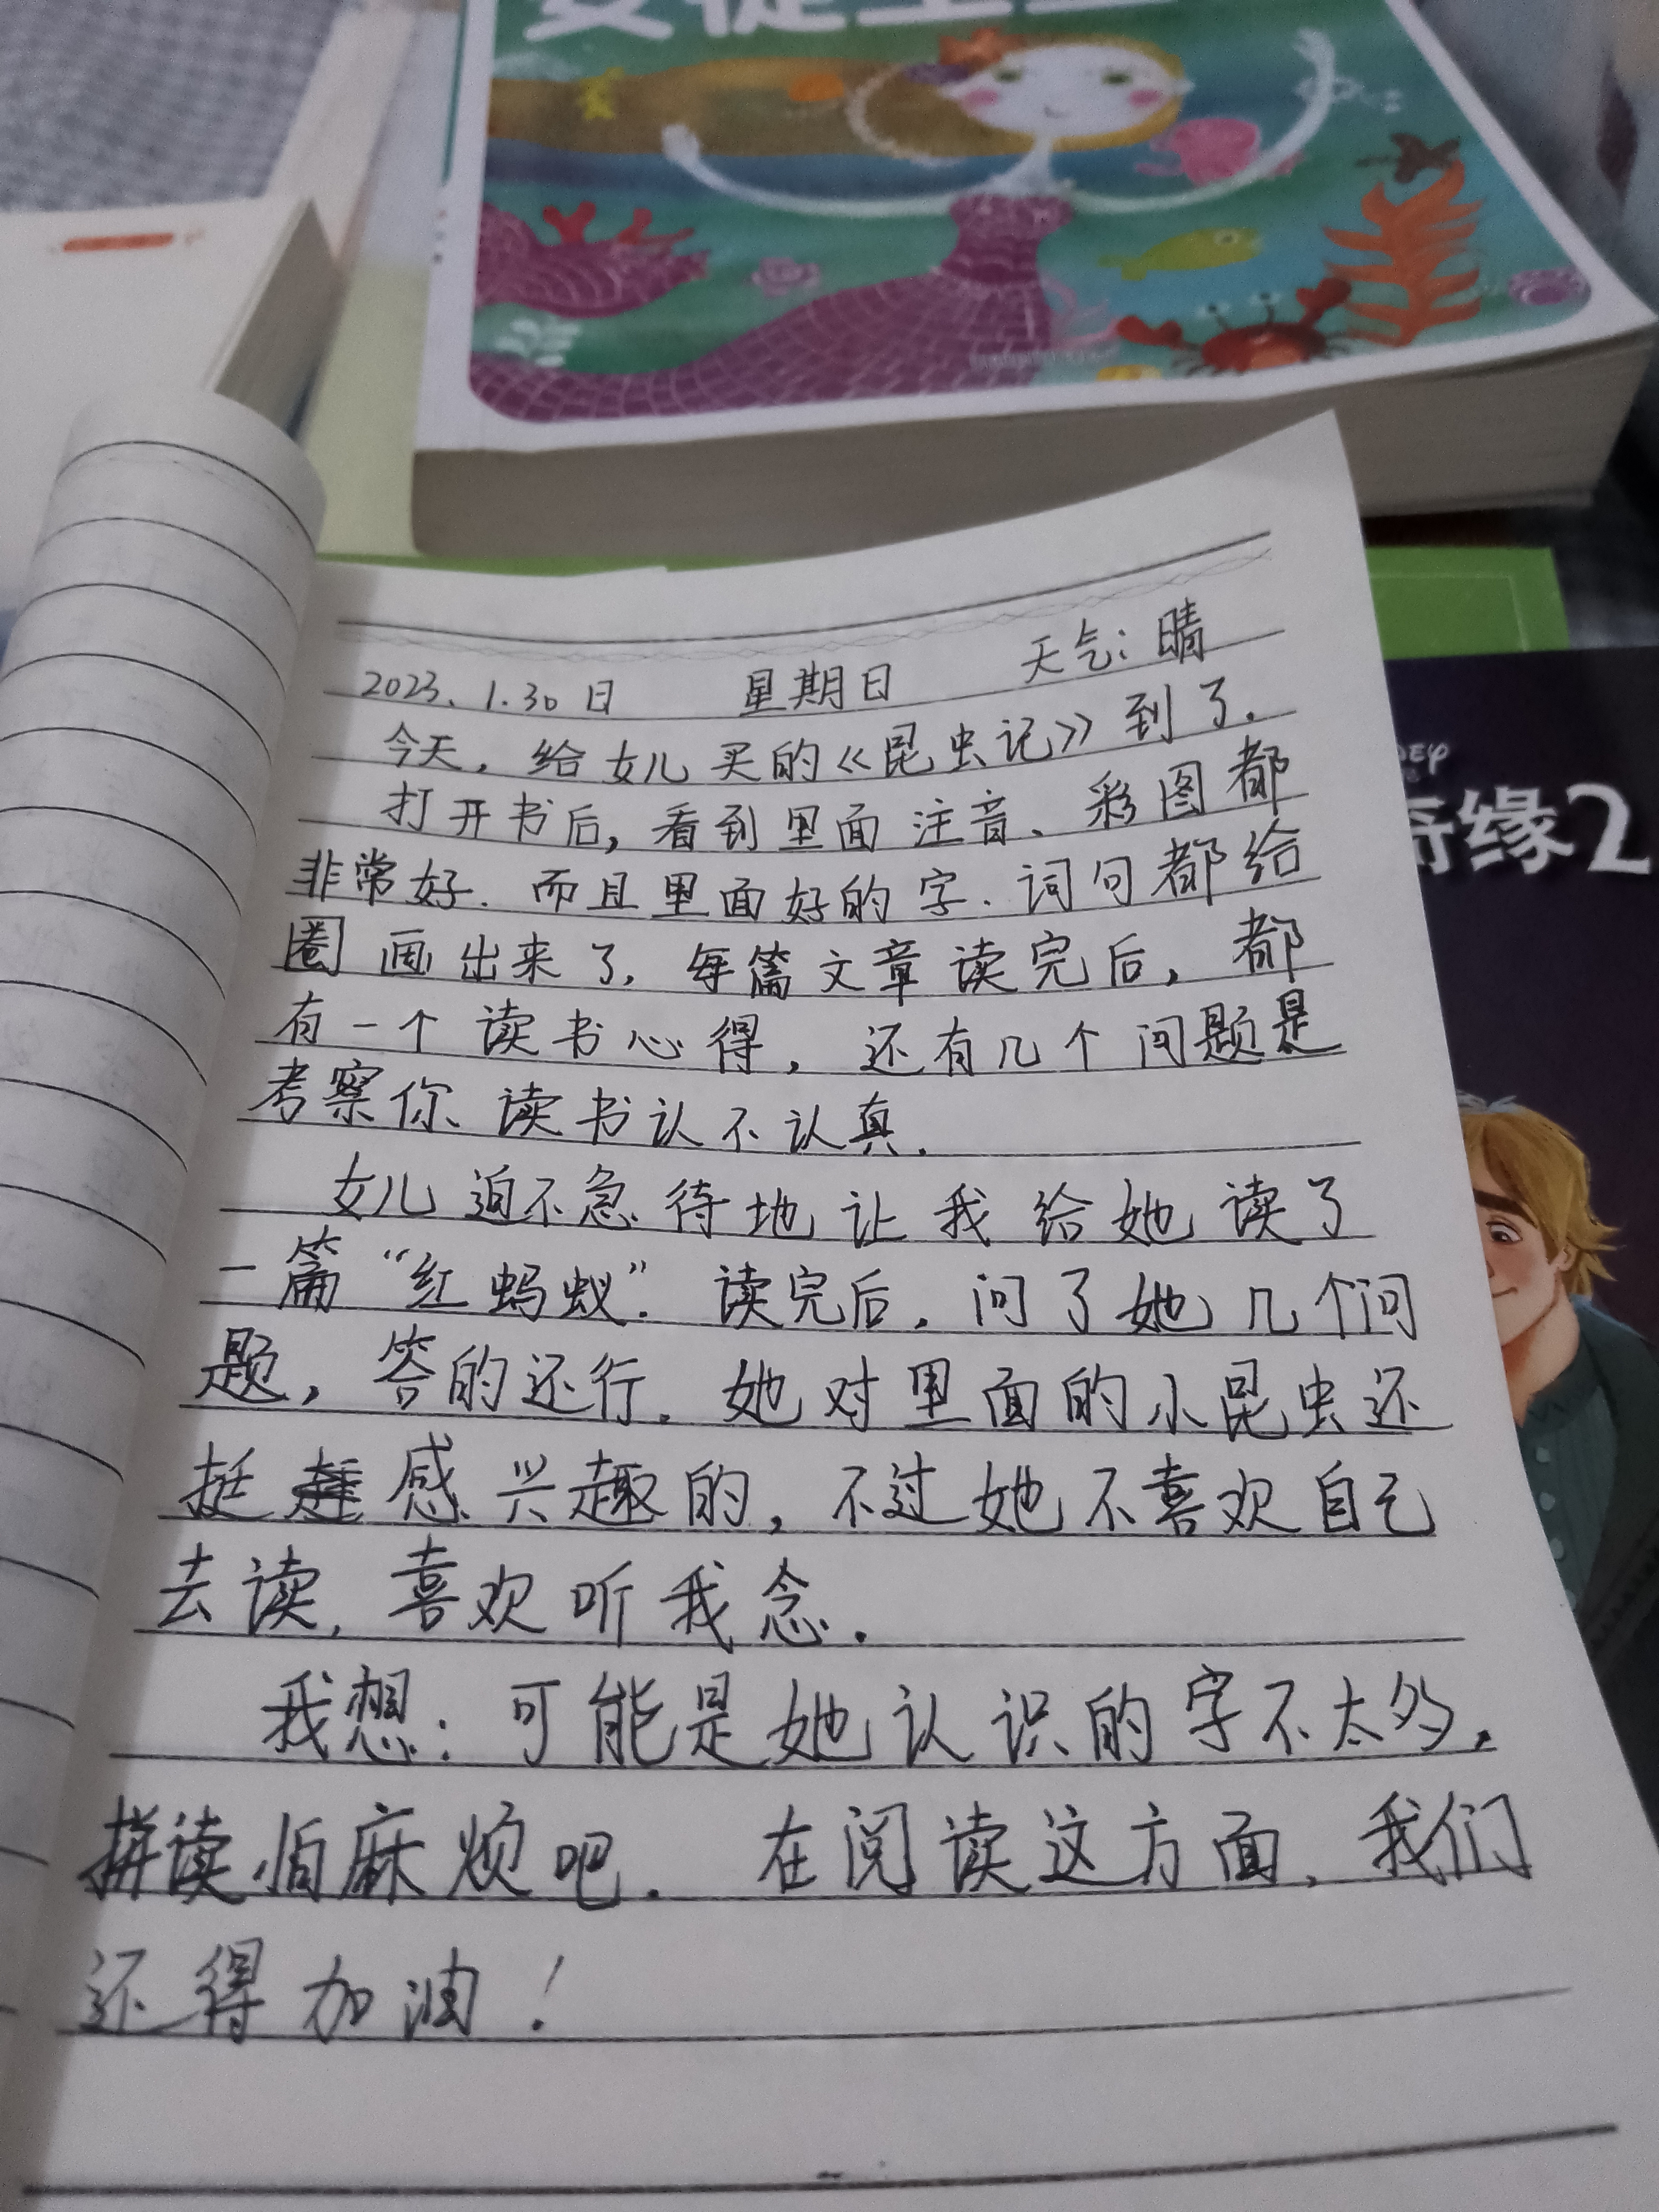 安徒生
2023.1.30日 星期日 天气:晴
今天,给女儿买的《昆虫记》到了.
打开书后,看到里面注音、彩图都
非常好.而且里面好的字.词句都给
圈画出来了.每篇文章读完后,都
有一个读书心得,还有几个问题是
考察你读书认不认真.
女儿迫不急待地让我给她读了
一篇“红蚂蚁”.读完后.问了她几个问
题,答的还行.她对里面的小昆虫还
挺感兴趣的,不过她不喜欢自己
去读,喜欢听我念.
我想:可能是她认识的字不太多,
拼读怕麻烦吧. 在阅读这方面,我们
还得加油!
奇缘2